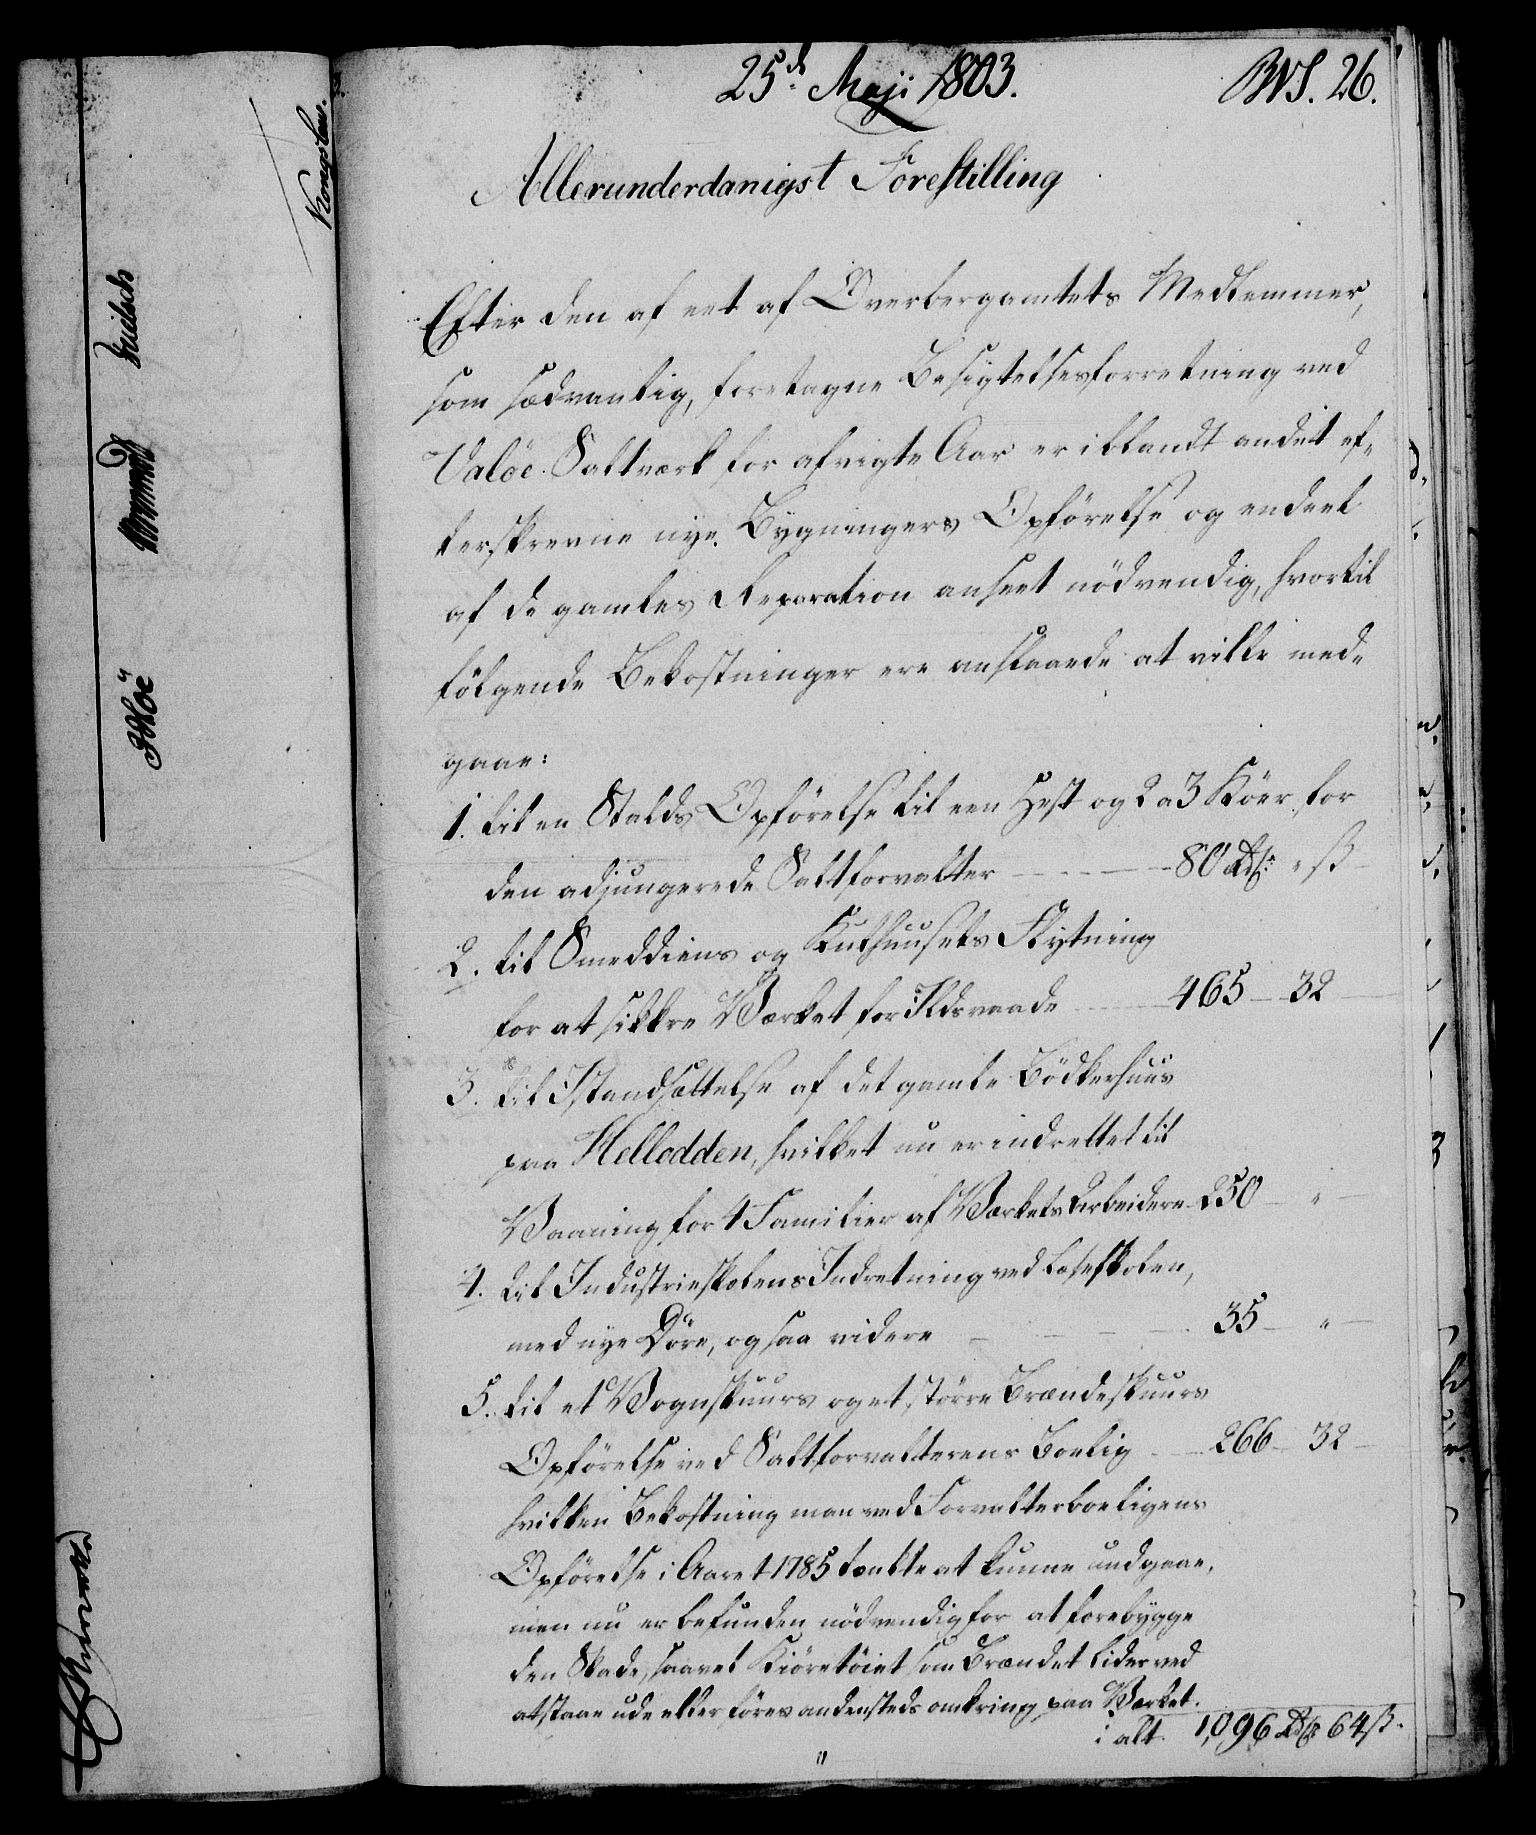 25de Maji 1803.
BVS. 26.
Allerunderdanigst Forestilling
Efter den af eet af Overbergamtets Medlemmer,
som sædvanlig, foretagne Besigtelsesforretning ved
Valöe Saltværk for afvigte Aar er iblandt andet ef-
terskrevne nye Bygningers Opförelse og endeel
af de gamles Reparation anseet nödvendig, hvortil
fölgende Bekostninger ere anslaaede at ville med-
gaae:
1. til en Stalds Opförelse til een Hest og 2 a 3 Köer for
den adjungerede Saltforvalter - - - - 80 Rdlr. " ß
2. til Smeddiens og Kulhuusets Flytning
for at sikkre Værket for Ildsvaade - - 465 - 32
3. til Istandsættelse af det gamle Bödkerhuus
paa Hellodden, hvilket nu er indrettet til
Vaaning for 4 Familier af Værkets Arbeidere 250 - " -
4. til Industrieskolens Indretning ved Læseskolen,
med nye Döre, og saa videre - - - - 35 - " -
5. til et Vognskuurs og et större Brændeskuurs
Opförelse ved Saltforvalterens Boelig - - 266 - 32 -
hvilken Bekostning man ved Forvalterboeligens
Opförelse i Aaret 1785 tænkte at kunne undgaae,
men nu er befunden nödvendig for at forebygge
den Skade, saavel Kiöretöiet som Brændet lider ved
at staae ude eller föres andensteds omkring paa Værket.
i alt. 1,096 Rdlr 64 ß.
Kongsb